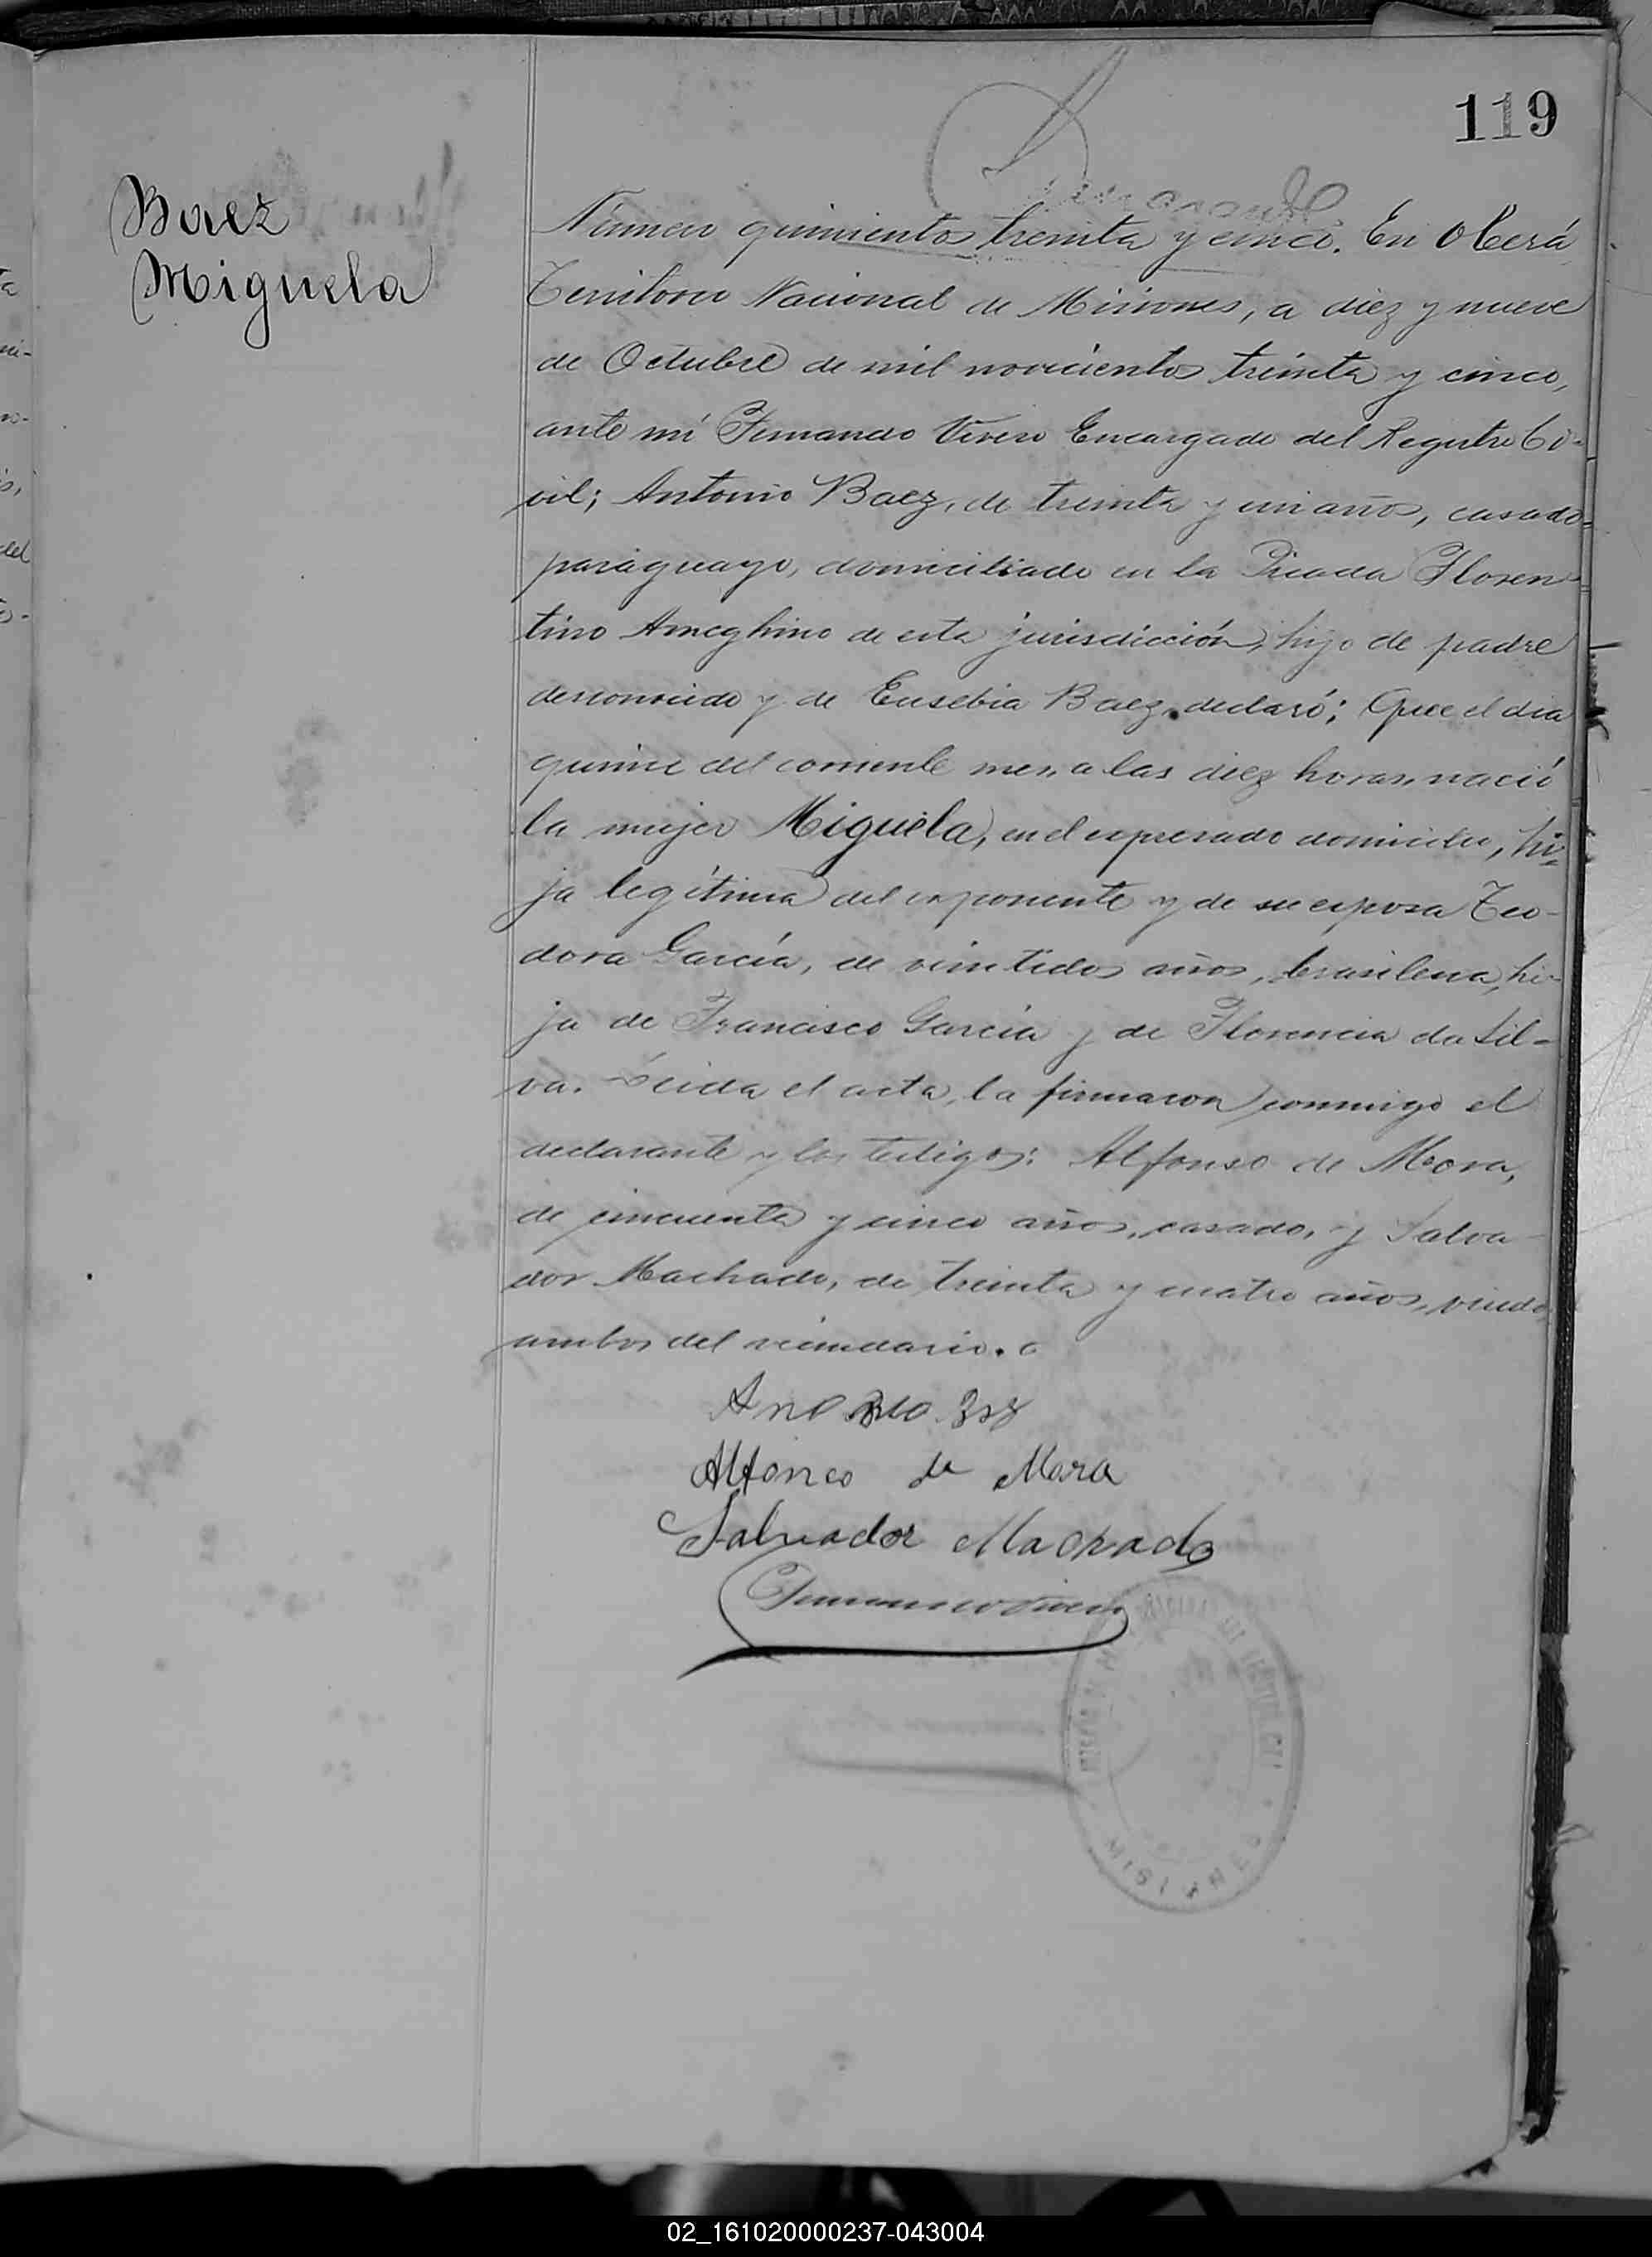 119
Baez
Miguela
Número quinientos treinta y cinco. En Oberá
Territorio Nacional de Misiones, a diez y nueve
de Octubre de mil novecientos treinta y cinco,
ante mí Fernando Vivero Encargado del Registro Ci-
vil; Antonio Baez, de treinta y un años, casado
paraguayo, domiciliado en la Picada Floren-
tino Ameghino de esta jurisdicción, hijo de padre
desconocido y de Eusebia Baez, declaró; Que el dia
quince del corriente mes, a las diez horas, nació
la mujer Miguela, en el expresado domicilio, hi-
ja legítima del exponente y de su esposa Teo-
dora García, de veintidos años, brasilena, hi-
ja de Francisco García y de Florencia da Sil-
va. Leida el acta, la firmaron conmigo el
declarante y los testigos: Alfonso de Mora,
de cincuenta y cinco años, casado, y Salva-
dor Machado, de treinta y cuatro años, viudo,
ambos del vecindario.
Alfonco de Mora
Salvador Machado
MISIONES
02_161020000237-043004